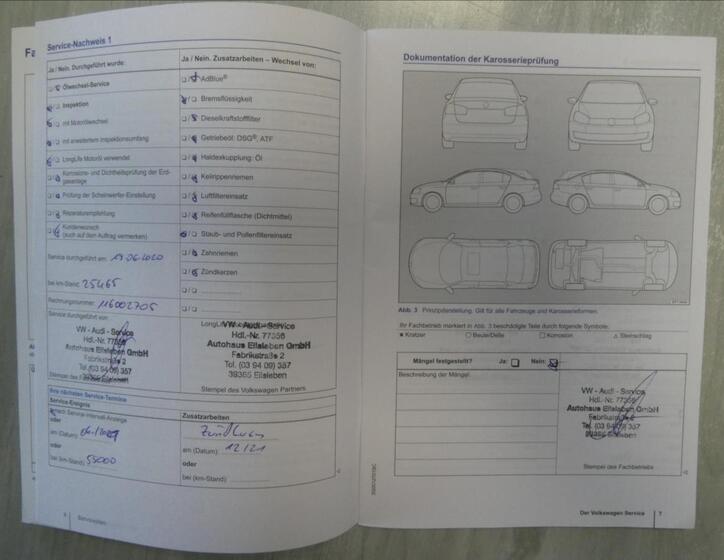 Service-Nachweis 1
Ja / Nein. Durchgeführt wurde:
Ölwechsel-Service
Inspektion
mit Motorölwechsel
mit erweitertem Inspektionsumfang
LongLife Motoröl verwendet
Korrosions- und Dichtheitsprüfung der Erd-
gasanlage
Prüfung der Scheinwerfer-Einstellung
Reparaturempfehlung
Kundenwunsch
(auch auf dem Auftrag vermerken)
Service durchgeführt am: 19.06.2020
bei km-Stand: 25465
Rechnungsnummer: 116002705
Service durchgeführt von:
VW - Audi - Service
Hdl.-Nr. 77356
Autohaus Eilsleben GmbH
Fabrikstraße 2
Tel. (03 94 09) 337
39365 Eilsleben
Ja / Nein. Zusatzarbeiten – Wechsel von:
AdBlue®
Bremsflüssigkeit
Dieselkraftstofffilter
Getriebeöl: DSG®, ATF
Haldexkupplung: Öl
Keilrippenriemen
Luftfiltereinsatz
Reifenfüllflasche (Dichtmittel)
Staub- und Pollenfiltereinsatz
Zahnriemen
Zündkerzen
VW - Audi - Service
Hdl.-Nr. 77356
Autohaus Eilsleben GmbH
Fabrikstraße 2
Tel. (03 94 09) 337
39365 Eilsleben
Stempel des Volkswagen Partners
Ihre nächsten Service-Termine
Service-Ereignis
nach Service-Intervall-Anzeige
oder
am (Datum):
oder
bei km-Stand): 55000
Zusatzarbeiten
am (Datum): 12/21
oder
bei (km-Stand):
Dokumentation der Karosserieprüfung
Abb. 3 Prinzipdarstellung. Gilt für alle Fahrzeuge und Karosserieformen.
Ihr Fachbetrieb markiert in Abb. 3 beschädigte Teile durch folgende Symbole:
Kratzer
Beule/Delle
Korrosion
Steinschlag
Mängel festgestellt? Ja: Nein:
Beschreibung der Mängel:
VW - Audi - Service
Hdl.-Nr. 77356
Autohaus Eilsleben GmbH
Fabrikstraße 2
Tel. (03 94 09) 337
39365 Eilsleben
Stempel des Fachbetriebs
Der Volkswagen Service 7